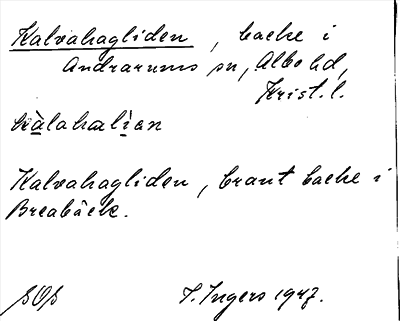 Kalvahagliden, backe i
Andrarums sn, Albo hd,
Krist. l.
Kalvahagliden, brant backe i
Breabäck.
SOS I. Ingers 1947.